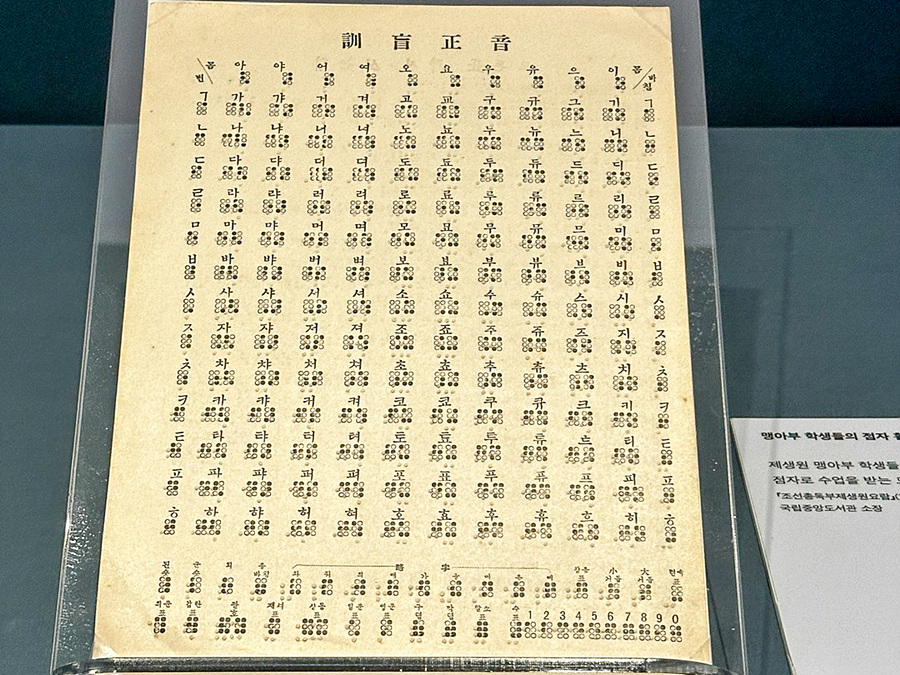 訓 盲 正 音
아 야 어 여 오 요 우 유 으 이
ㄱ 가 갸 거 겨 고 교 구 규 그 기 ㄱ
ㄴ 나 냐 너 녀 노 뇨 누 뉴 느 니 ㄴ
ㄷ 다 댜 더 뎌 도 됴 두 듀 드 디 ㄷ
ㄹ 라 랴 러 려 로 료 루 류 르 리 ㄹ
ㅁ 마 먀 머 며 모 묘 무 뮤 므 미 ㅁ
ㅂ 바 뱌 버 벼 보 뵤 부 뷰 브 비 ㅂ
ㅅ 사 샤 서 셔 소 쇼 수 슈 스 시 ㅅ
ㅈ 자 쟈 저 져 조 죠 주 쥬 즈 지 ㅈ
ㅊ 차 챠 처 쳐 초 쵸 추 츄 츠 치 ㅊ
ㅋ 카 캬 커 켜 코 쿄 쿠 큐 크 키 ㅋ
ㅌ 타 탸 터 텨 토 툐 투 튜 트 티 ㅌ
ㅍ 파 퍄 퍼 펴 포 표 푸 퓨 프 피 ㅍ
ㅎ 하 햐 허 혀 호 효 후 휴 흐 히 ㅎ
略 字
1 2 3 4 5 6 7 8 9 0
맹아부 학생들의 점자
제생원 맹아부 학생들
점자로 수업을 받는
『조선총독부제생원요람』(
국립중앙도서관 소장